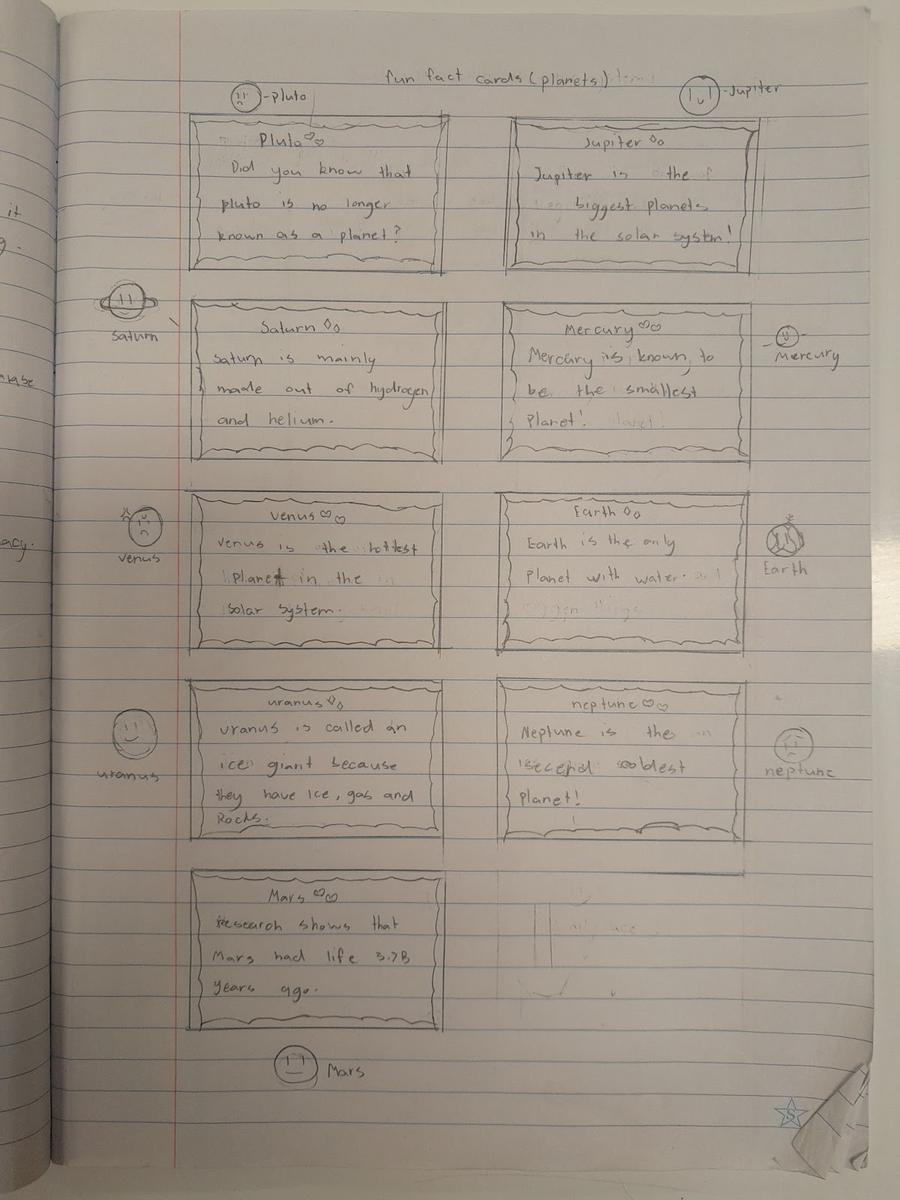 fun fact cards (planets)
-pluto
-Jupiter
Pluto
Did you know that
pluto is no longer
known as a planet?
Jupiter
Jupiter is the
biggest planets
in the solar system!
Saturn
Saturn
Saturn is mainly
made out of hydrogen
and helium.
Mercury
Mercury is known to
be the smallest
Planet!
Mercury
Venus
venus
venus is the hottest
Planet in the
solar system.
Earth
Earth is the only
Planet with water.
Earth
uranus
uranus
uranus is called an
ice giant because
they have Ice, gas and
Rocks.
neptune
Neptune is the
second coldest
planet!
neptune
Mars
Research shows that
Mars had life 3.7B
years ago.
Mars
it
acy.
S